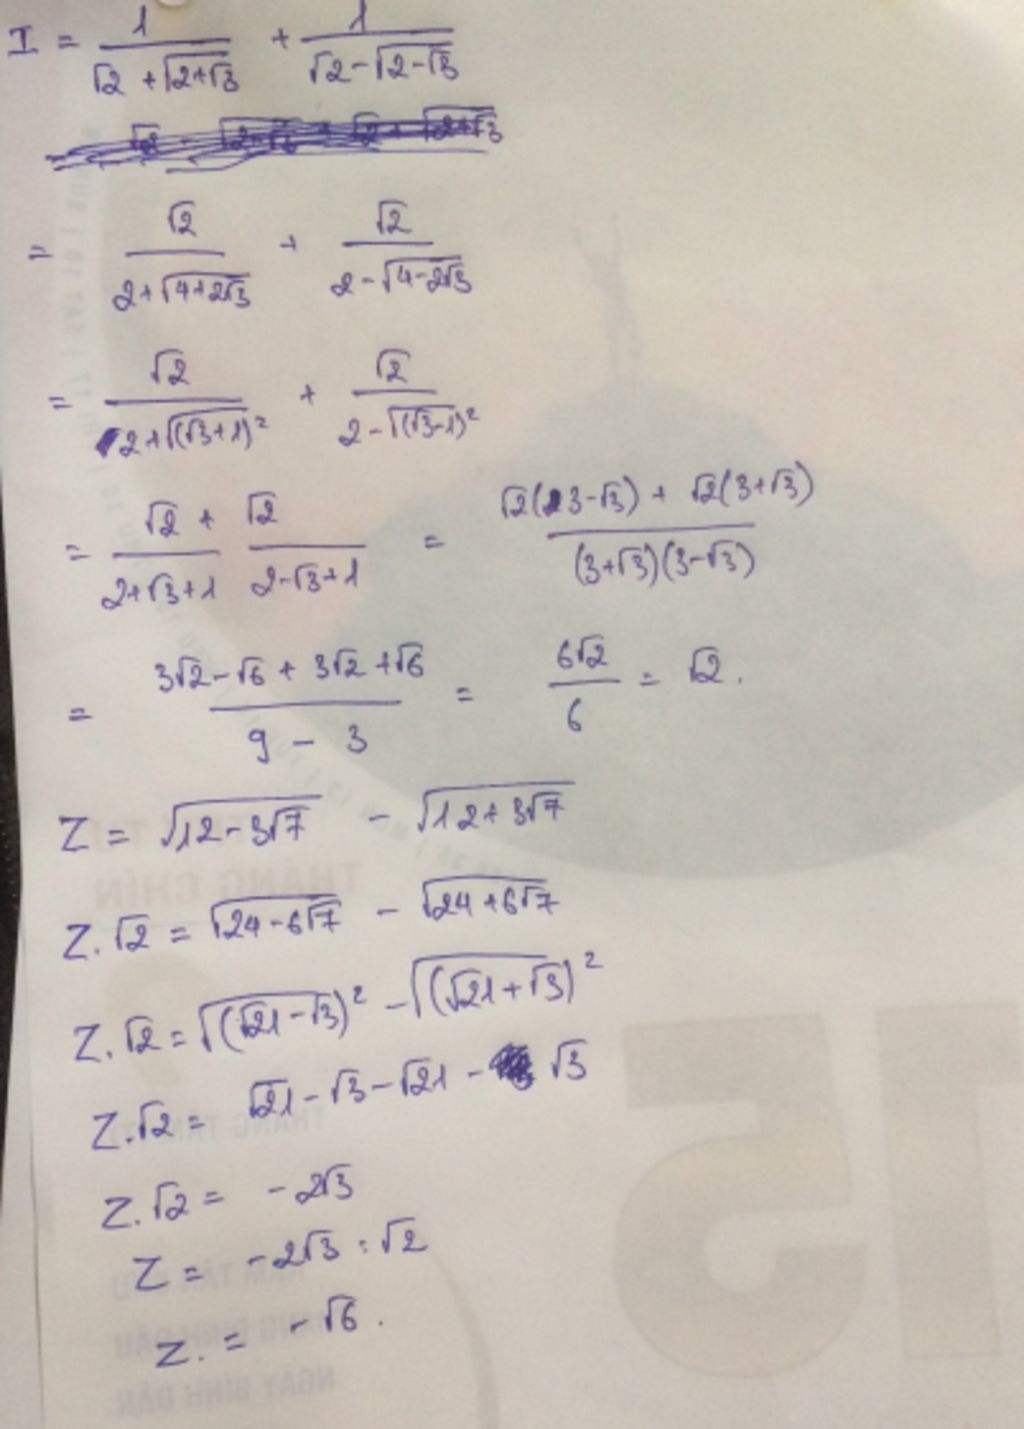 I = 1/(√2 + √(2+√3)) + 1/(√2 - √(2-√3))
= √2/(2+√(4+2√3)) + √2/(2-√(4-2√3))
= √2/(2+√((√3+1)²)) + √2/(2-√((√3-1)²))
= √2/(2+√3+1) + √2/(2-√3+1) = (√2(3-√3) + √2(3+√3))/((3+√3)(3-√3))
= (3√2-√6 + 3√2+√6)/(9 - 3) = 6√2/6 = √2.
Z = √(12-3√7) - √(12+3√7)
Z.√2 = √(24-6√7) - √(24+6√7)
Z.√2 = √((√21-√3)²) - √((√21+√3)²)
Z.√2 = √21-√3-√21-√3
Z.√2 = -2√3
Z = -2√3 : √2
Z. = -√6.
THÁNG CHÍN
15
NGÀY BÍNH DẦN